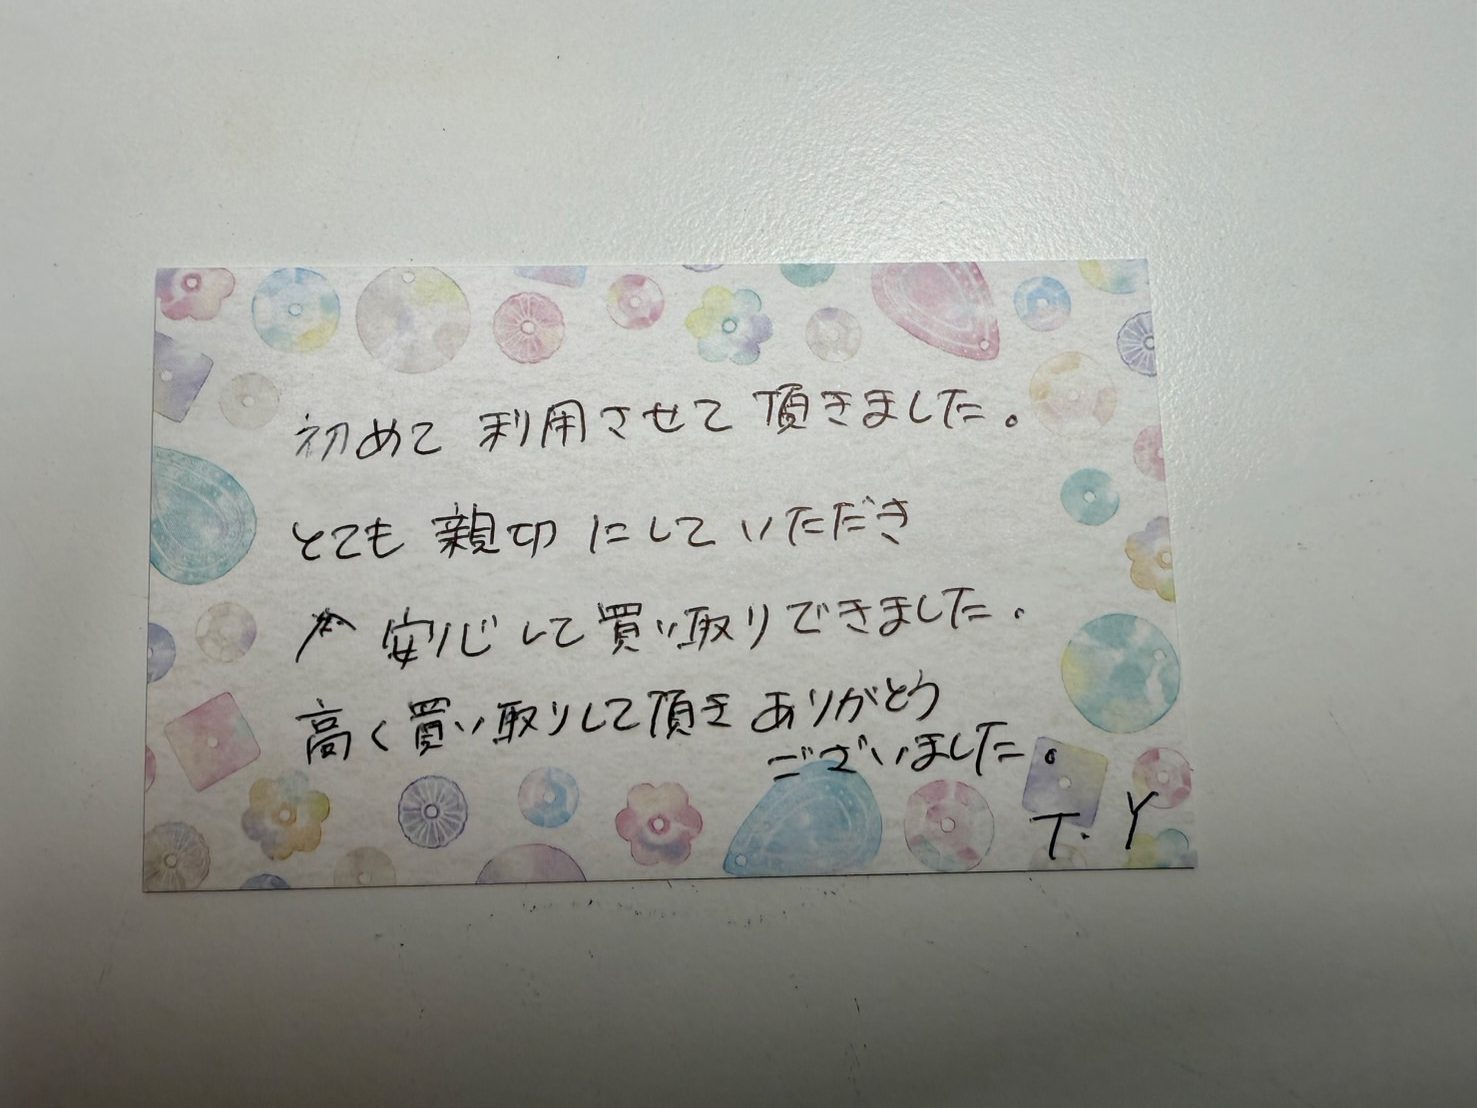 初めて 利用させて 頂きました。
とても 親切 にして いただき
安心して 買い取りできました.
高く買い取りして頂き ありがとう
ございました。
T. Y